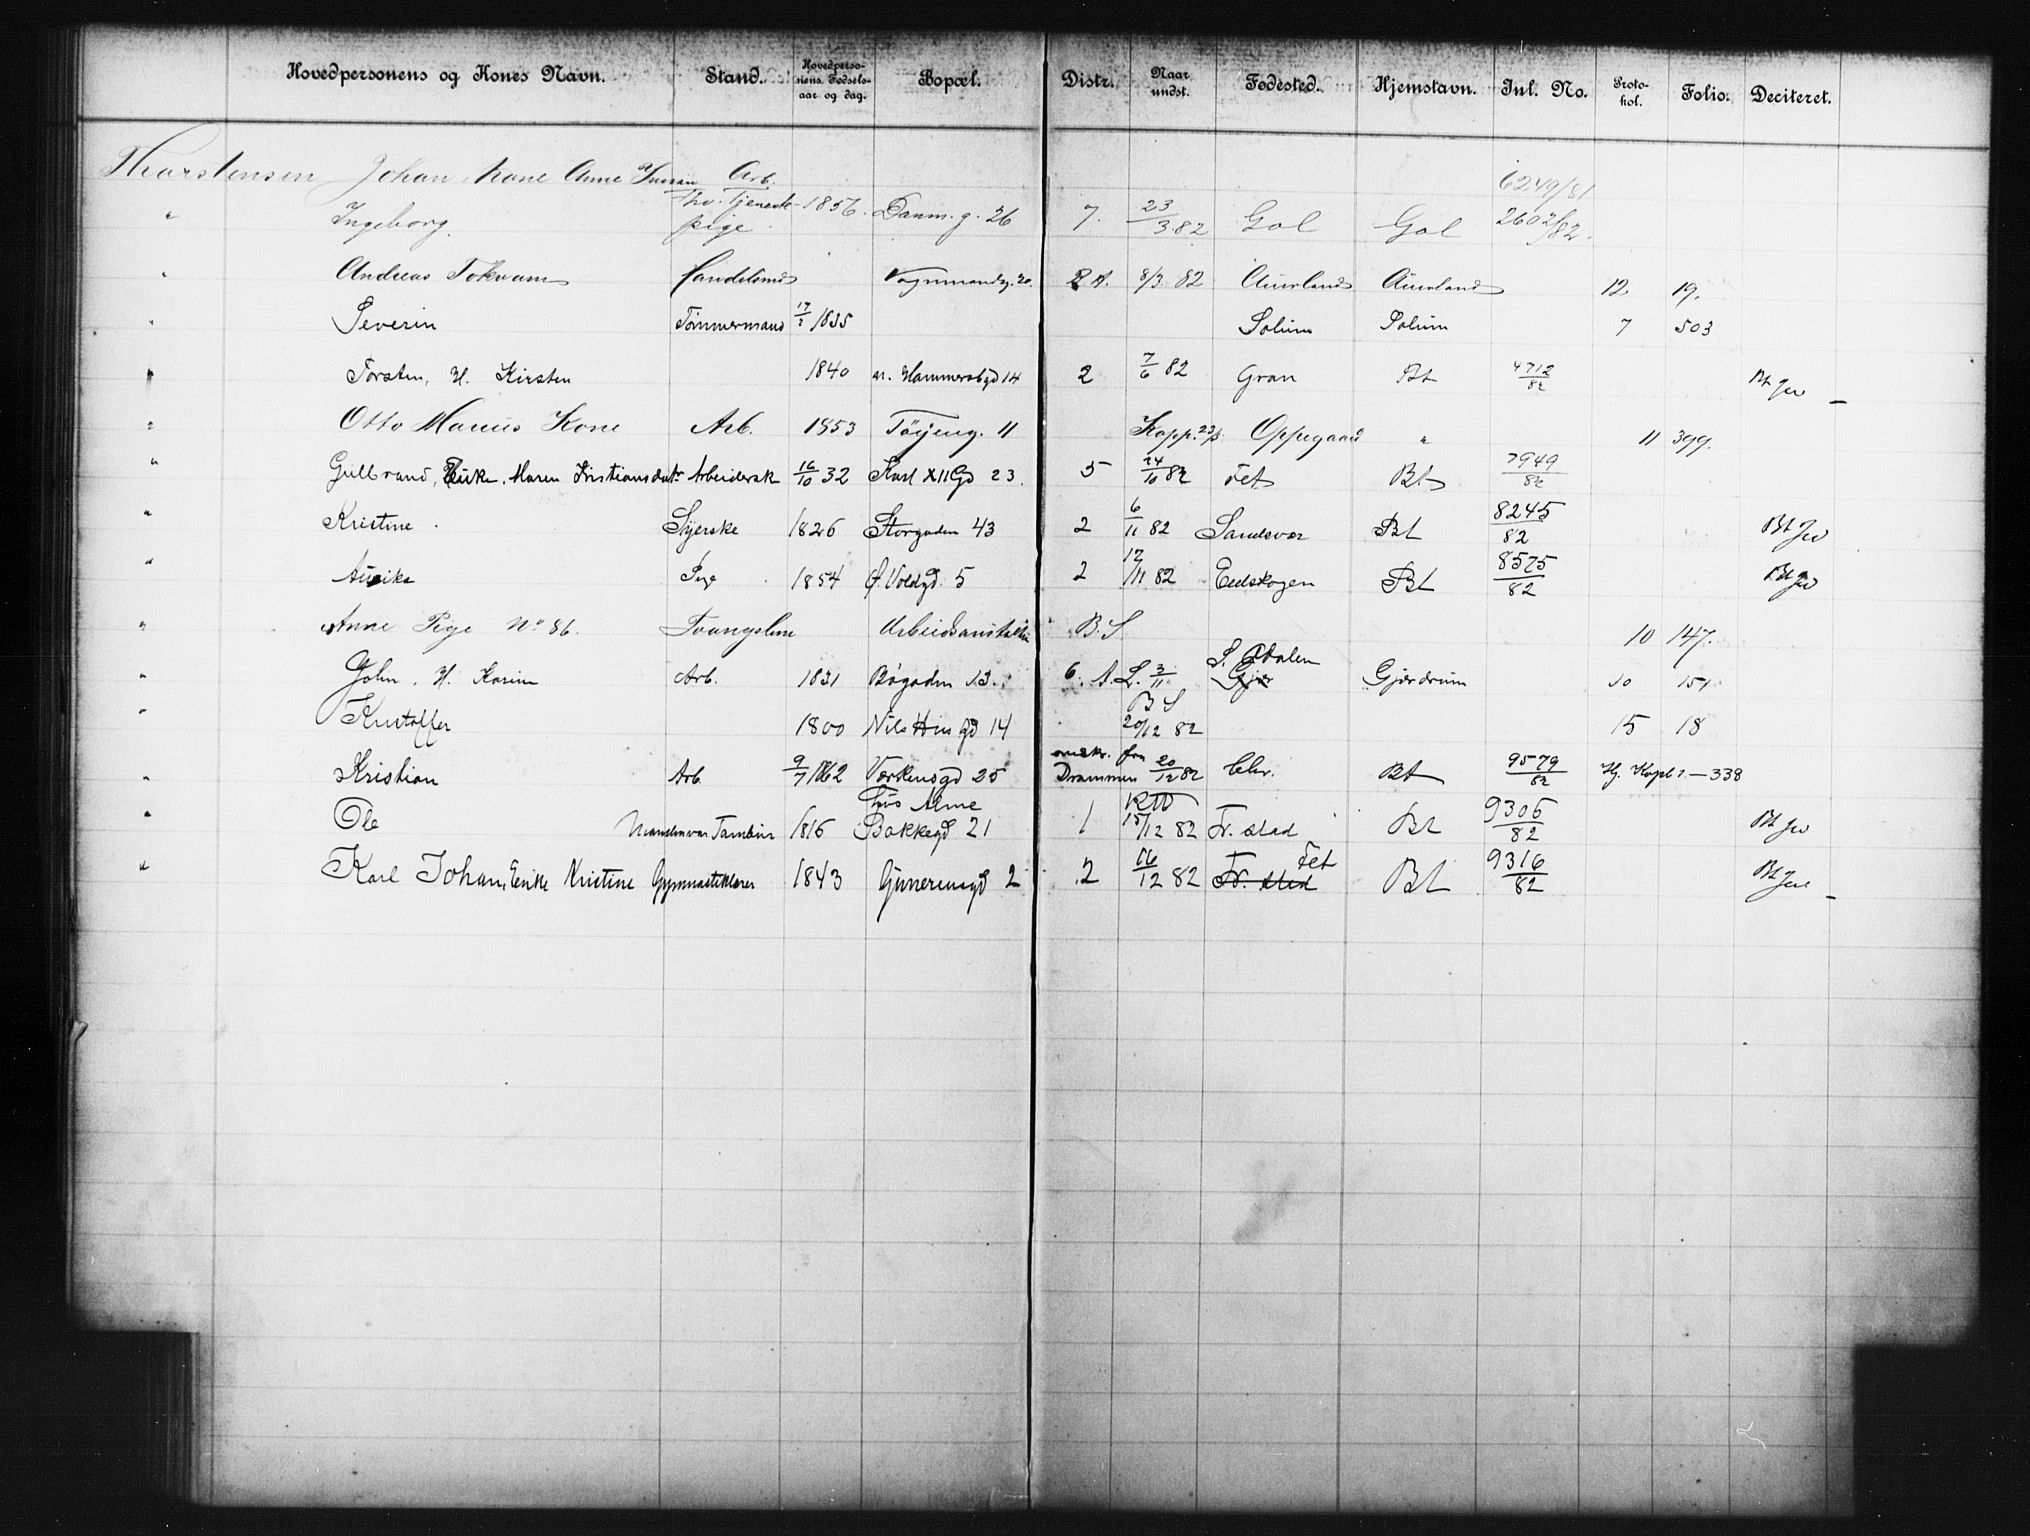 Hovedpersonens og Kones Navn. Stand. Hovedpersonens Fødselsaar og dag. Bopæl. Distr. Naar undst. Fødested. Hjemstavn. Inl. No. Protokol. Folio. Deciteret.
Thorstensen Johan, Kone Anne Arb. 6249/81
" Ingeborg. Tjenestepige 1856. Danm. g. 26 7. 23/3 82 Gol Gol 2602/82.
" Andreas Tokvam Handelsmd Vognmandsg. 20. 2 A. 8/3 82 Aurland Aurland 12 19.
" Severin Tømmermand 17/2 1835 Solum Solum 7 503
" Torsten, H. Kirsten 1840 n. Hammersbgd 14 2 7/6 82 Gran Bt 4712/82 Bt Jw
" Otto Marius Kone Arb. 1853 Tøijeng. 11 Kopp. 23/5 Oppegaard " 11 399.
" Gulbrand, Enke, Maren Kristiansdatr Arbeidersk 16/10 32 Karl XII Gd 23. 5 24/10 82 Fet Bt 7949/82
" Kristine. Syerske 1826 Storgaden 43 2 6/11 82 Sandsvær Bt 8245/82 Bt Jw
" Pige 1854 Ø. Voldgd. 5 2 17/11 82 Eidskogen Bt 8575/82 Bt Jw
" Anne Pige No 86. Tvangslem Arbeidsanstalten B. S 10 147.
" John, H. Karin Arb. 1831 Bøgaden 13. 6. A. L. 3/11 S. Odalen Gjær Gjerdrum 10 151
" Kristoffer 1800 Nils Hus gd 14 B S 20/12 82 15 18
" Kristian Arb 9/7 1862 Værkensgd 25 omskr. fra Drammen 20/12 82 Chr. Bt 9579/82 Hj. Kopb 1 — 338
" Ole Tambur 1816 hos Alme Bakkegd 21 1 15/12 82 Fr. stad Bt 9305/82 Bt Jw
" Karl Johan, Enke Kristine Gymnastiklærer 1843 Gunerensgd 2 2 16/12 82 Fr. stad Fet Bt 9316/82 Bt Jw